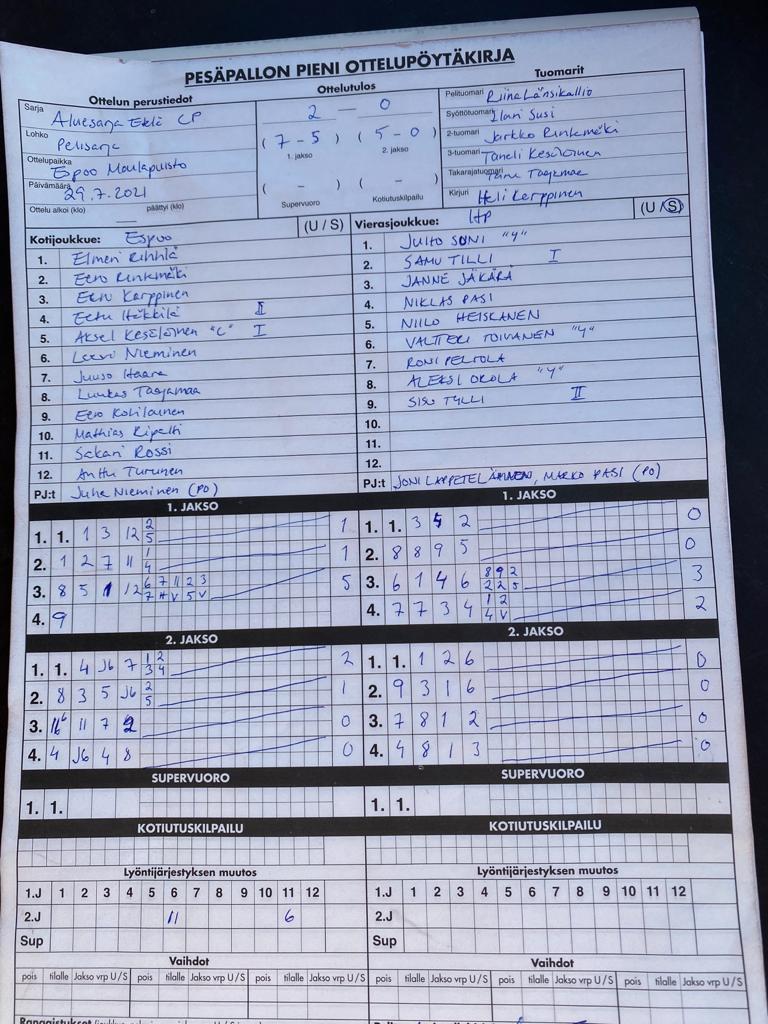 PESÄPALLON PIENI OTTELUPÖYTÄKIRJA
Ottelun perustiedot
Sarja Aluesarja Etelä CP
Lohko Pelisarja
Ottelupaikka Espoo Maulapuisto
Päivämäärä 29.7.2021
Ottelu alkoi (klo) päättyi (klo)
Ottelutulos
2 — 0
( 7-5 ) ( 5-0 )
1. jakso 2. jakso
( - ) ( - )
Supervuoro Kotiutuskilpailu
Tuomarit
Pelituomari Riina Länsikallio
Syöttötuomari Ilari Susi
2-tuomari Jarkko Rinkmäki
3-tuomari Taneli Kesäläinen
Takarajatuomari Taajamaa
Kirjuri Heli Karppinen
Kotijoukkue: Espoo (U / S)
1. Elmeri
2. Eero Rinkmäki
3. Eetu Karppinen
4. Eetu Häkkilä II
5. Aksel Kesäläinen "C" I
6. Leevi Nieminen
7. Juuso Haara
8. Luukas Taajamaa
9. Eero
10. Mathias Ripatti
11. Sakari Rossi
12. Anttu Turunen
PJ:t Juha Nieminen (PO)
Vierasjoukkue: HP (U / S)
1. JUHO SONI "Y"
2. SAMU TILLI I
3. JANNE JÄKÄRÄ
4. NIKLAS PASI
5. NIILO HEISKANEN
6. VALTTERI TOIVANEN "Y"
7. RONI PELTOLA
8. ALEKSI OKOLA "Y"
9. SISU TYLLI II
10.
11.
12.
PJ:t JONI LAPPETELÄINEN, MARKO PASI (PO)
1. JAKSO
1. 1. 1 3 12 2 5 1
2. 1 2 7 11 1 4 1
3. 8 5 1 12 6 7 11 2 3 7 H V 5 V 5
4. 9
1. JAKSO
1. 1. 3 5 2 0
2. 8 8 9 5 0
3. 6 1 4 6 8 9 2 2 2 5 3
4. 7 7 3 4 1 2 4 V 2
2. JAKSO
1. 1. 4 J6 7 1 2 3 4 2
2. 8 3 5 J6 2 5 1
3. 11 7 2 0
4. 4 J6 4 8 0
2. JAKSO
1. 1. 1 2 6 0
2. 9 3 1 6 0
3. 7 8 1 2 0
4. 4 8 1 3 0
SUPERVUORO
1. 1.
SUPERVUORO
1. 1.
KOTIUTUSKILPAILU
KOTIUTUSKILPAILU
Lyöntijärjestyksen muutos
1.J 1 2 3 4 5 6 7 8 9 10 11 12
2.J 11 6
Sup
Lyöntijärjestyksen muutos
1.J 1 2 3 4 5 6 7 8 9 10 11 12
2.J
Sup
Vaihdot
pois tilalle Jakso vrp U / S pois tilalle Jakso vrp U / S pois tilalle Jakso vrp U / S
Vaihdot
pois tilalle Jakso vrp U / S pois tilalle Jakso vrp U / S pois tilalle Jakso vrp U / S